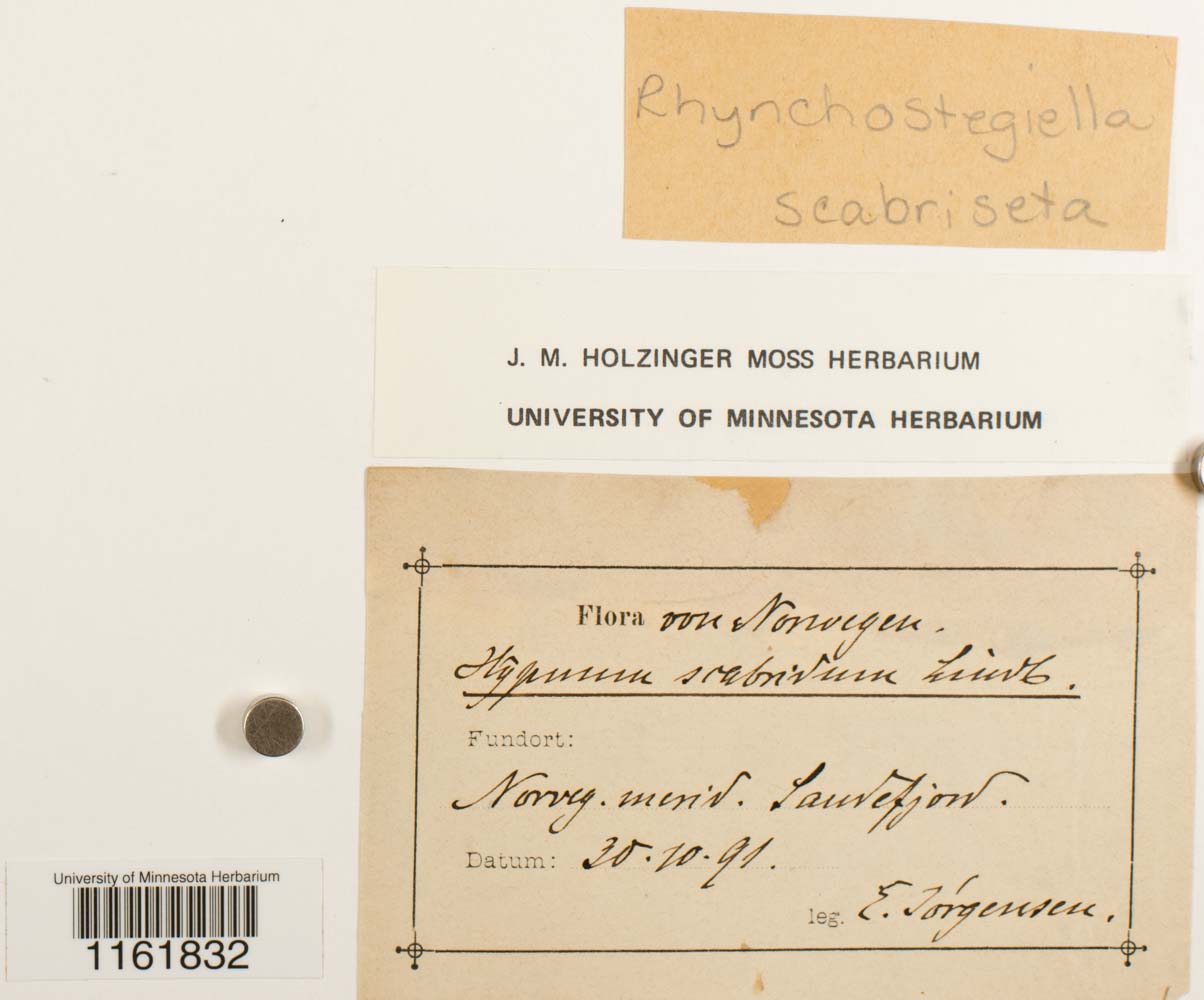 Rhynchostegiella
scabriseta
J. M. HOLZINGER MOSS HERBARIUM
UNIVERSITY OF MINNESOTA HERBARIUM
Flora von Norwegen.
Hypnum scabridum Lindb.
Fundort:
Norveg. merid. Sandefjord.
Datum: 30.10.91.
leg. E. Jørgensen.
University of Minnesota Herbarium
1161832